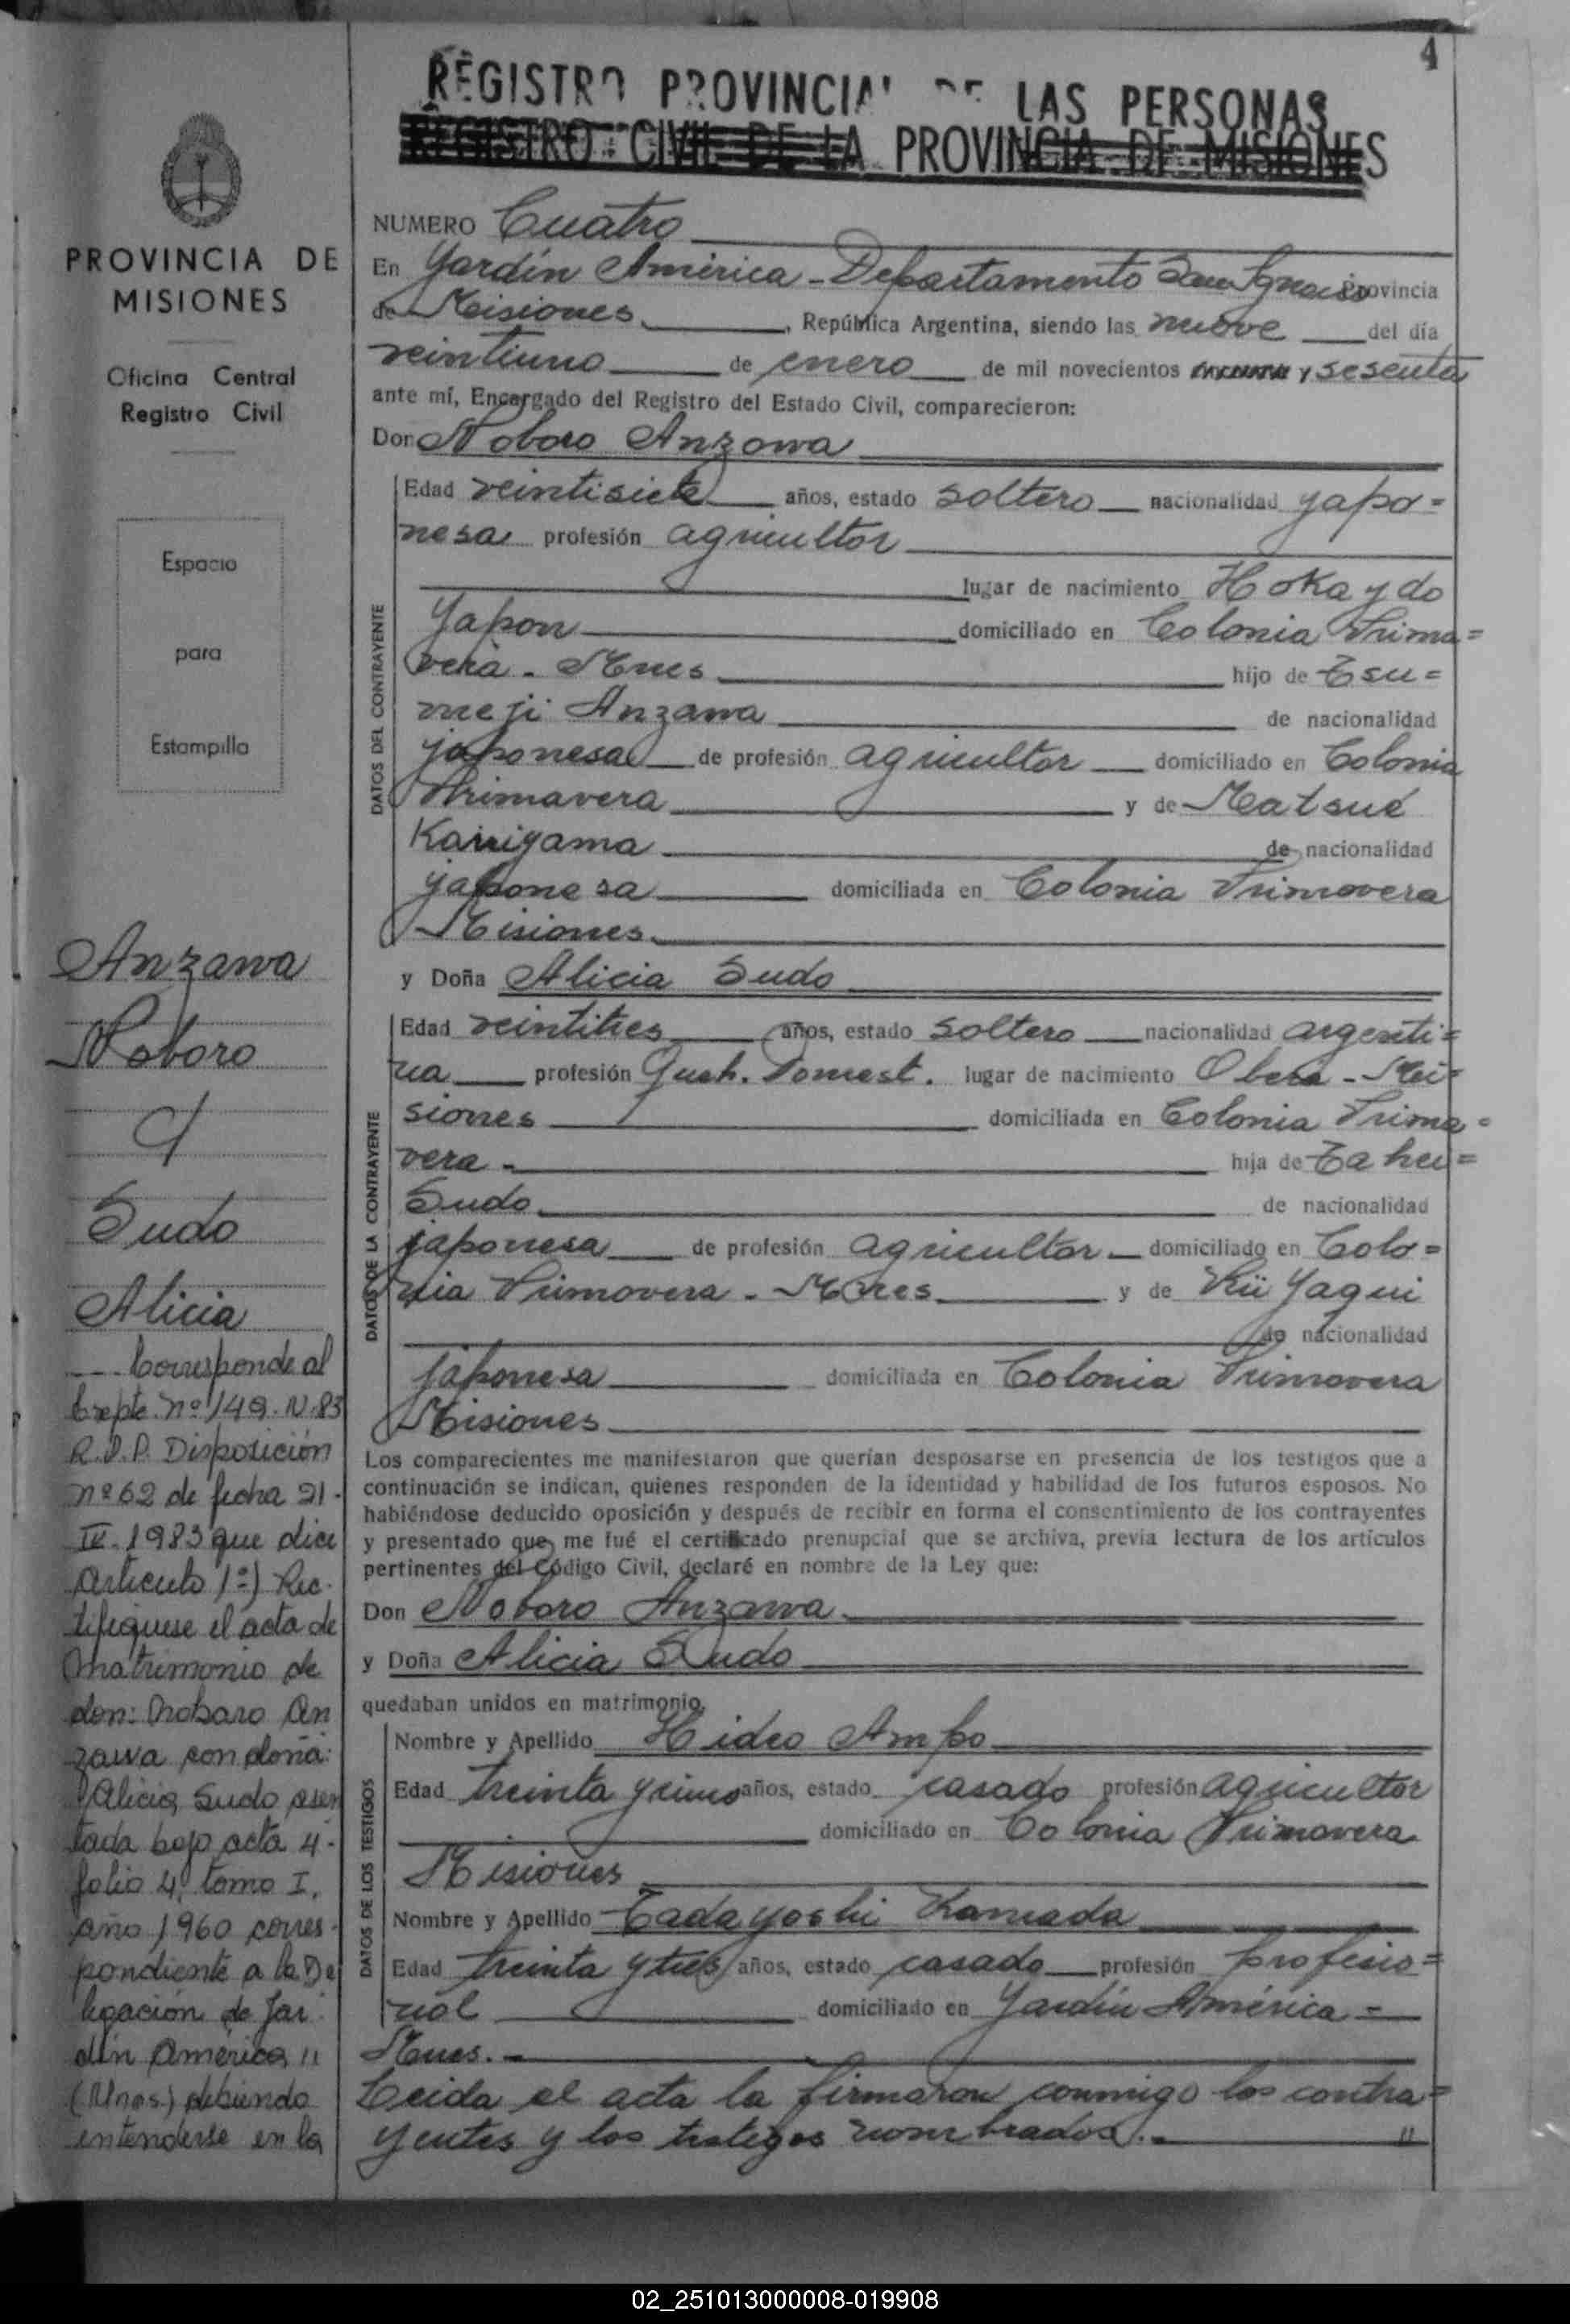 4
REGISTRO PROVINCIAL DE LAS PERSONAS
REGISTRO CIVIL DE LA PROVINCIA DE MISIONES
PROVINCIA DE
MISIONES
Oficina Central
Registro Civil
Espacio
para
Estampilla
Anzawa
Noboro
c/
Sudo
Alicia
Corresponde al
Expte. nº 149. N. 83
R.P.P. Disposición
nº 62 de fecha 21-
IV-1983 que dice
Artículo 1º) Rec-
tifiquese el acta de
Matrimonio de
don: Noboro An
zawa con doña:
Alicia Sudo asen
tada bajo acta 4-
folio 4, tomo I,
año 1960 corres-
pondiente a la De
legación de Jar-
dín América "
(Mnes.) debiendo
entenderse en la
NUMERO Cuatro
En Yardín América - Departamento San Ignacio Provincia
de Misiones, República Argentina, siendo las nueve del día
veintiuno de enero de mil novecientos y sesenta
ante mí, Encargado del Registro del Estado Civil, comparecieron:
Don Noboro Anzowa
DATOS DEL CONTRAYENTE
Edad veintisiete años, estado soltero nacionalidad yapo=
nesa profesión agricultor
lugar de nacimiento Hokaydo
Yapon domiciliado en Colonia Prima=
vera - Mnes hijo de Tsu=
meji Anzawa de nacionalidad
japonesa de profesión agricultor domiciliado en Colonia
Primavera y de Matsué
de nacionalidad
japonesa domiciliada en Colonia Primavera
Misiones
y Doña Alicia Sudo
DATOS DE LA CONTRAYENTE
Edad veintitres años, estado soltero nacionalidad argenti=
na profesión Queh. Domest. lugar de nacimiento Obera - Mi=
siones domiciliada en Colonia Prima=
vera - hija de Tahei=
Sudo de nacionalidad
japonesa de profesión agricultor domiciliado en Colo=
nia Primavera - Mnes y de Yagui
de nacionalidad
japonesa domiciliada en Colonia Primavera
Misiones
Los comparecientes me manifestaron que querían desposarse en presencia de los testigos que a
continuación se indican, quienes responden de la identidad y habilidad de los futuros esposos. No
habiéndose deducido oposición y después de recibir en forma el consentimiento de los contrayentes
y presentado que me fué el certificado prenupcial que se archiva, previa lectura de los artículos
pertinentes del Código Civil, declaré en nombre de la Ley que:
Don Noboro Anzawa
y Doña Alicia Sudo
quedaban unidos en matrimonio.
DATOS DE LOS TESTIGOS
Nombre y Apellido Hideo Ampo
Edad treinta y uno años, estado casado profesión agricultor
domiciliado en Colonia Primavera
Misiones
Nombre y Apellido Tadayoshi Kamada
Edad treinta y tres años, estado casado profesión profesio=
nal domiciliado en Yardín América =
Mnes. -
Leida el acta la firmaron conmigo los contra=
yentes y los testigos nombrados. - "
02_251013000008-019908